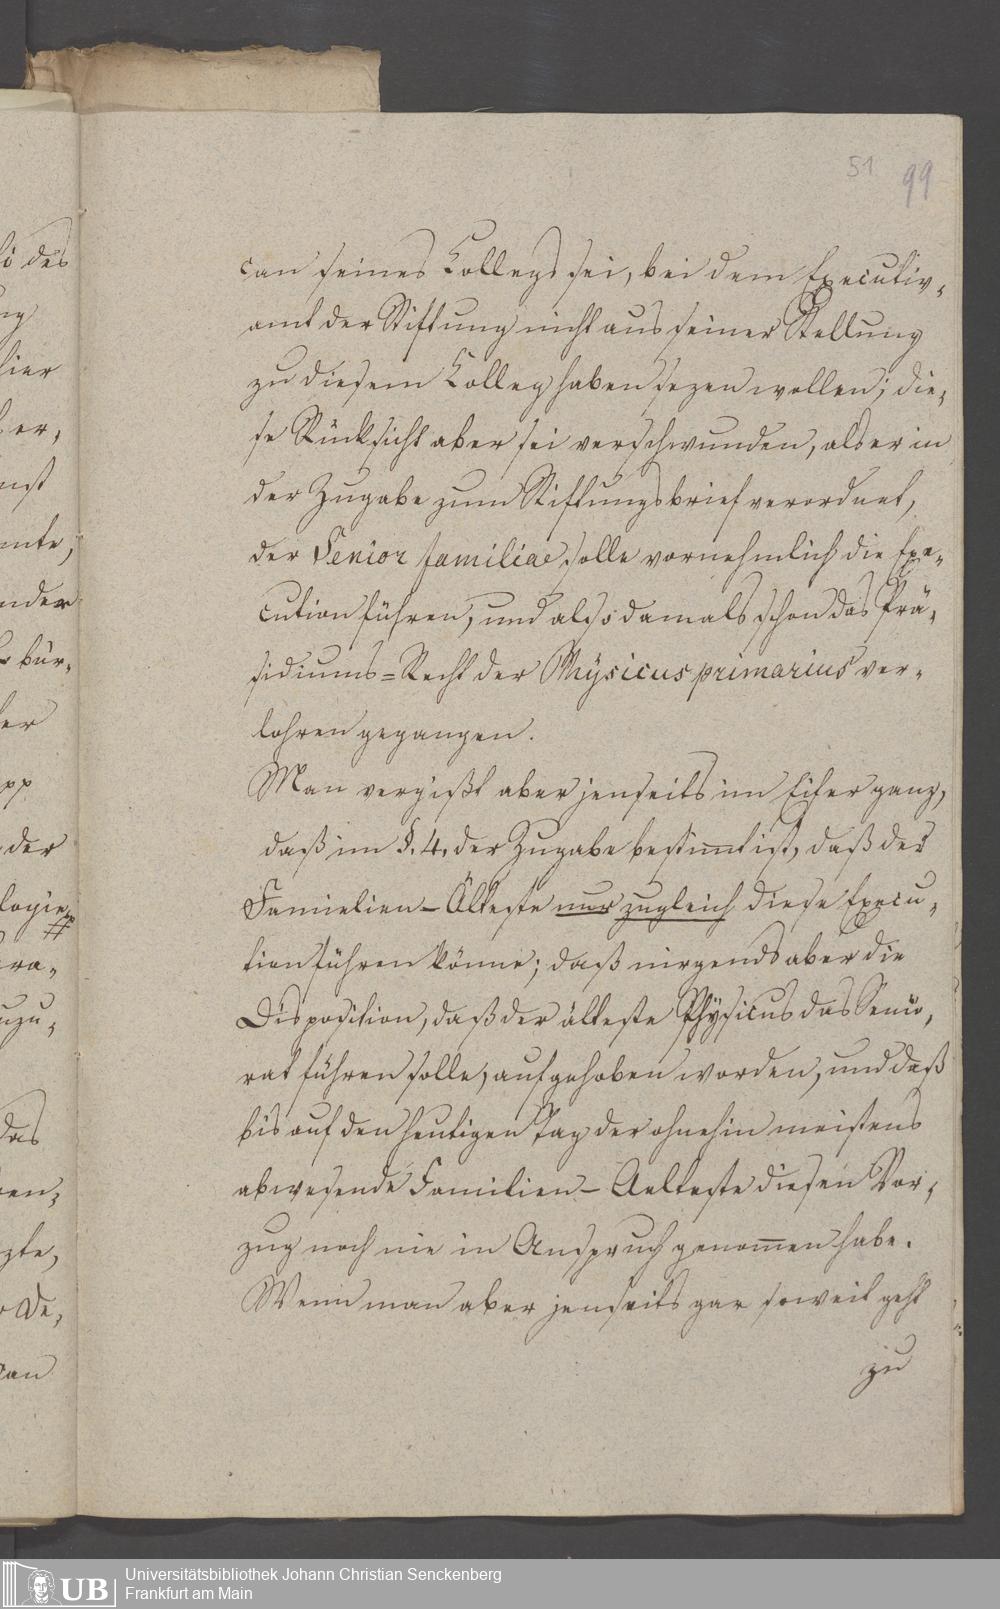 51 99
can seines Collegs sei, bei dem Executiv-
amt der Stiftung nicht aus seiner Stellung
zu diesem Colleg haben sezen wollen; die-
se Rücksicht aber sei verschwunden, als er in
der Zugabe zum Stiftungsbrief verordnet,
der Senior familiae solle vornehmlich die Exe-
cution führen, und also damals schon das Prä-
sidiums=Recht der Physicus primarius ver-
lohren gegangen.
Man vergißt aber jenseits im Eifer ganz,
daß im §. 4. der Zugabe bestimmt ist, daß der
Familien-Älteste nur zugleich diese Execu-
tion führen könne; daß nirgends aber die
Disposition, daß der älteste Physicus das Senio-
rat führen solle, aufgehoben worden, und daß
bis auf den heutigen Tag der ohnehin meistens
abwesende Familien-Aelteste diesen Vor-
zug noch nie in Anspruch genommen habe.
Wenn man aber jenseits gar soweit geht
zu
des
hier
er,
nst
mte,
nder
bür-
er
pp
der
logie
ra-
nzu-
das
en-
zte,
De-
can
UB Universitätsbibliothek Johann Christian Senckenberg
Frankfurt am Main